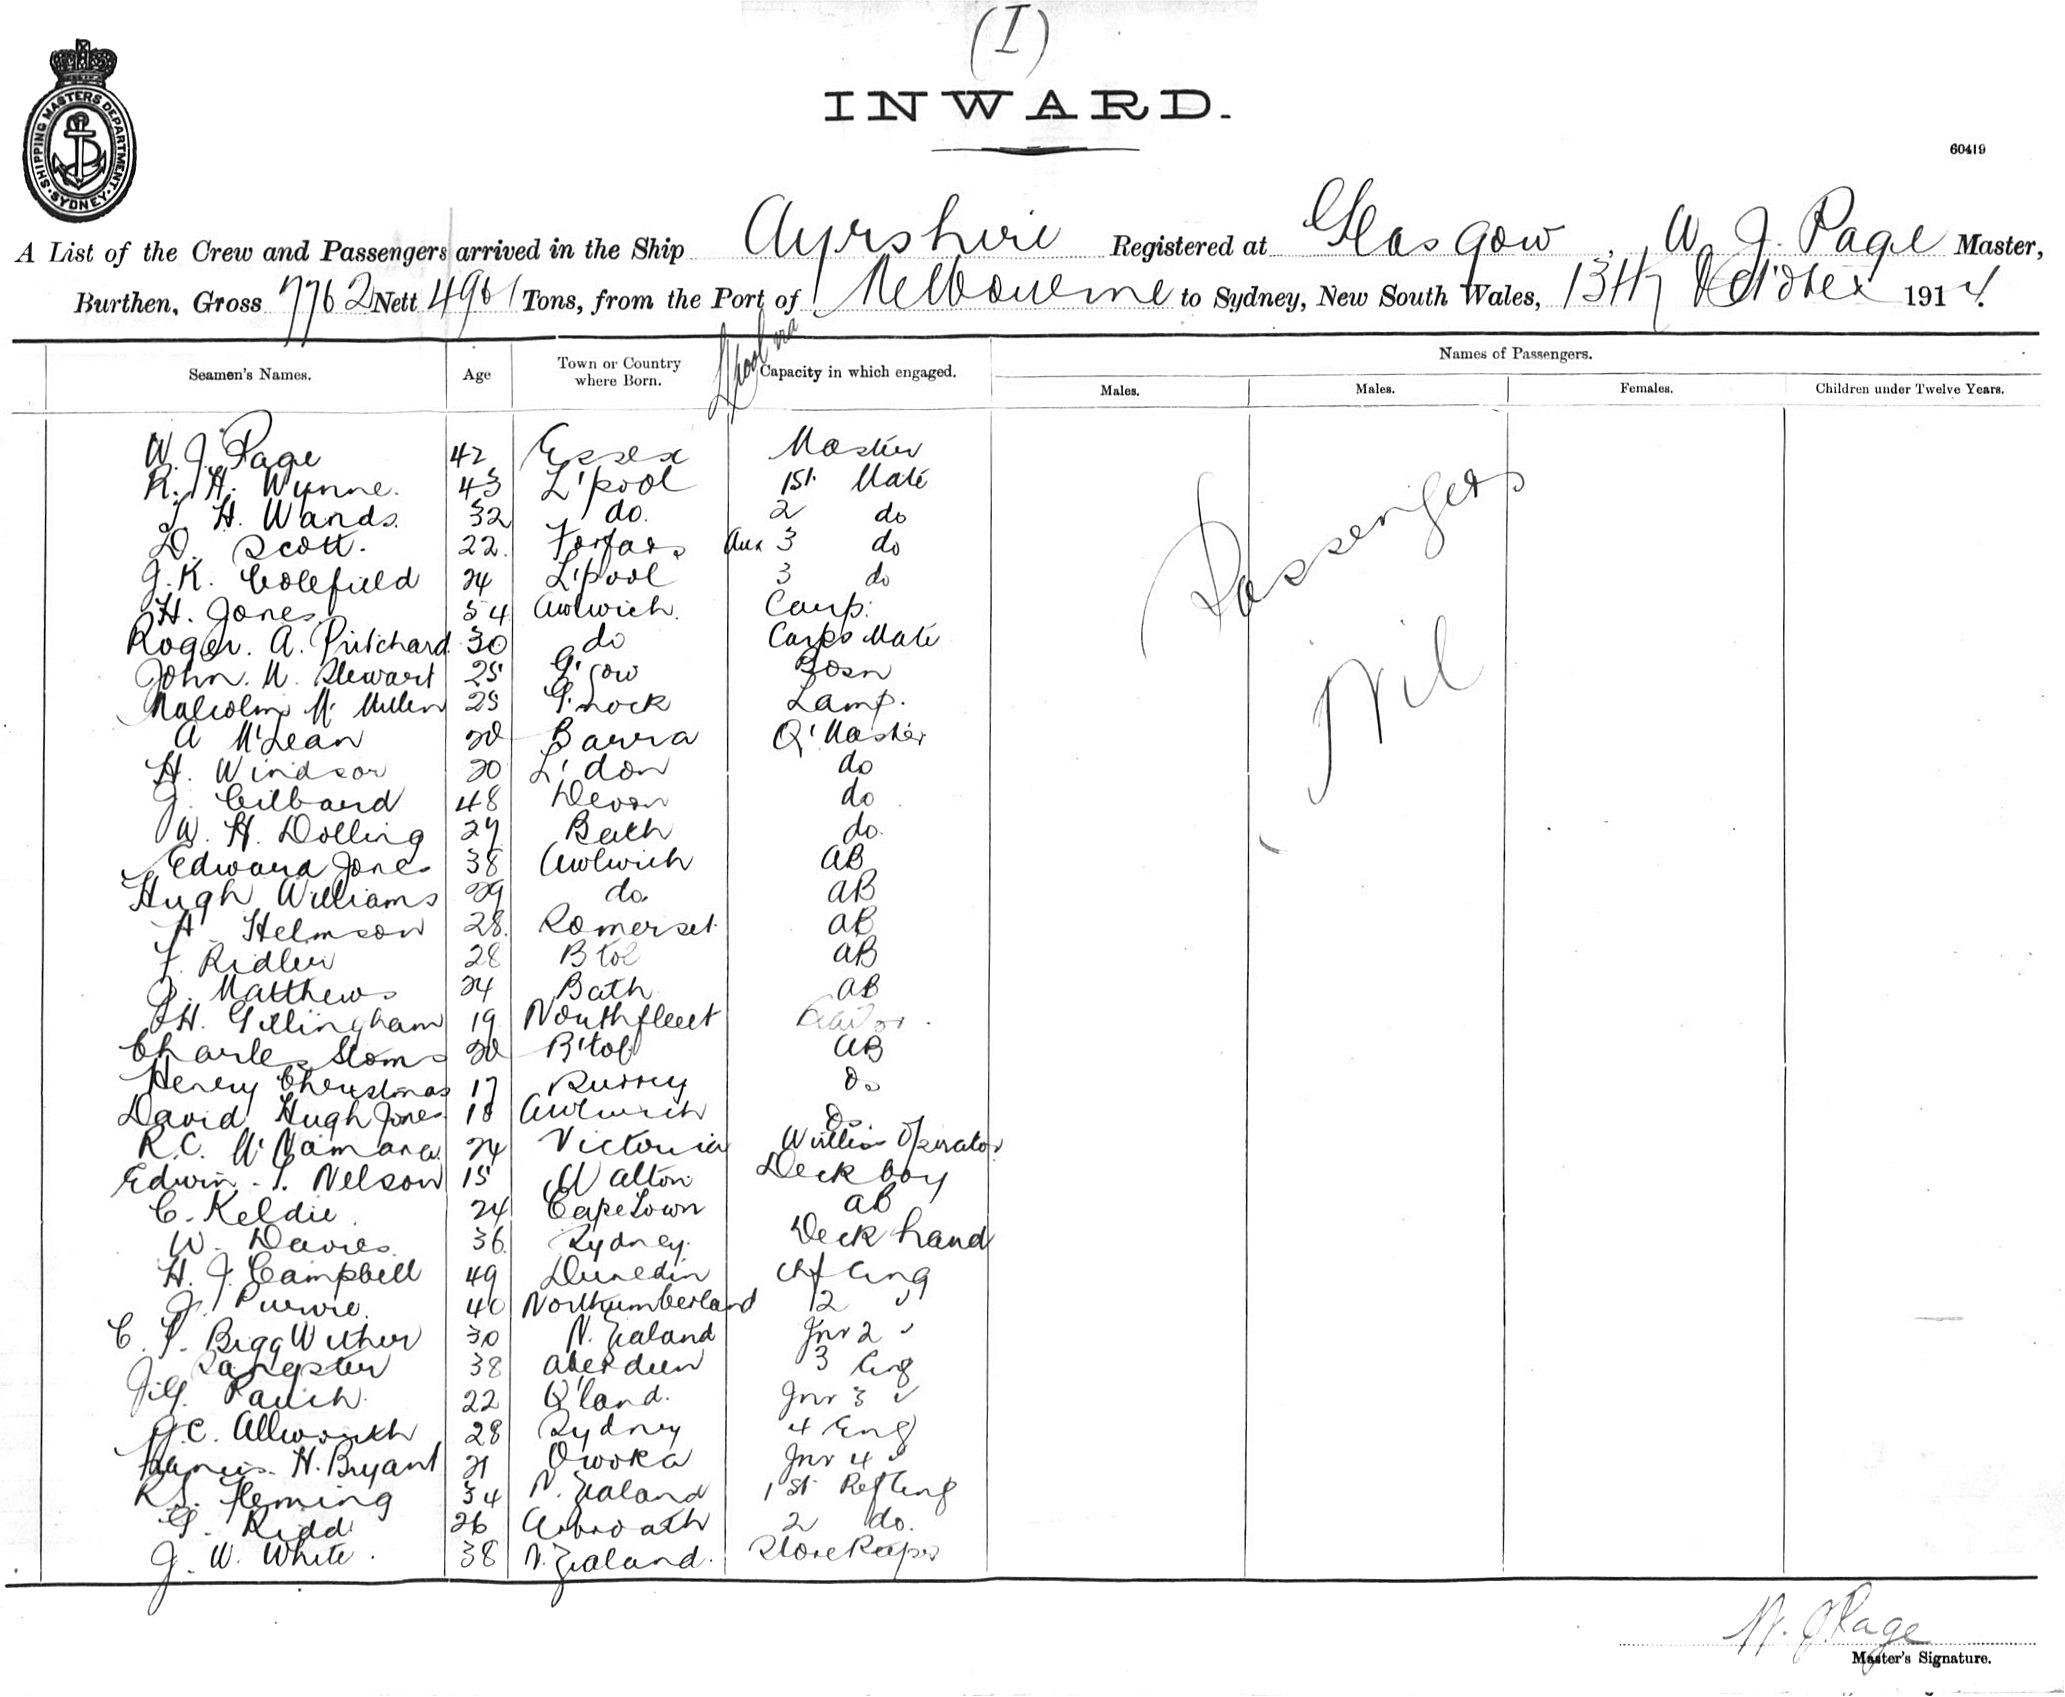 (I)
INWARD.
SHIPPING MASTERS DEPARTMENT
SYDNEY
60419
A List of the Crew and Passengers arrived in the Ship Ayrshire Registered at Glasgow, W J. Page Master,
Burthen, Gross 7762 Nett 4961 Tons, from the Port of Melbourne to Sydney, New South Wales, 13th October 1914.
L'pool via
Seamen's Names. Age Town or Country where Born. Capacity in which engaged. Names of Passengers.
Males. Males. Females. Children under Twelve Years.
W. J. Page 42 Essex Master
R. H. Wynne. 43 L'pool 1st Mate
T H. Wands. 32 do. 2 do
D. Scott. 22. Forfar Aux 3 do
J. K. Colefield 24 L'pool 3 do
H. Jones 54 Amlwich. Carp:
Roger. A. Pritchard. 30 do Carps Mate
John. M. Stewart 25 G'gow Bosn
Malcolm Mc Millen 25 G'nock Lamp.
A McLean 20 Barra Q'Master
H. Windsor 20 L'don do
J. Gilbard 48 Devon do
W. H. Dolling 27 Bath do.
Edward Jones 38 Amlwich AB
Hugh Williams 29 do. AB
A Helmson 28. Somerset. AB
F. Ridler 28 B'tol AB
J. Matthews 24 Bath AB
H. Gillingham 19 Northfleet Sailor.
Charles Stoms 20 B'tol AB
Henry Christmas 17 Surrey Os
David Hugh Jones 18 Amlwich Os.
R. C. McNamara. 24 Victoria Wireless Operator
Edwin. T. Nelson 15 Walton Deck boy
C. Keldie 24 Cape Town AB
W. Davies. 36. Sydney. Deck hand
H. J. Campbell 49 Dunedin Chf Eng
J. Purvie. 40 Northumberland 2 "
C. P. Bigg Wither 30 N. Zealand Jnr 2 "
J. Sangster 38 Aberdeen 3 Eng
Rauch. 22 Q'land. Jnr 3 "
A. C. Allworth 28 Sydney 4 Eng
Francis. H. Bryant 21 Owaka Jnr 4 "
R. S. Fleming 34 N. Zealand 1st Ref Eng
G. Kidd 26 Arbroath 2 do.
J. W. White. 38 N. Zealand. Storekeeper
Passengers
Nil
W. J. Page
Master's Signature.